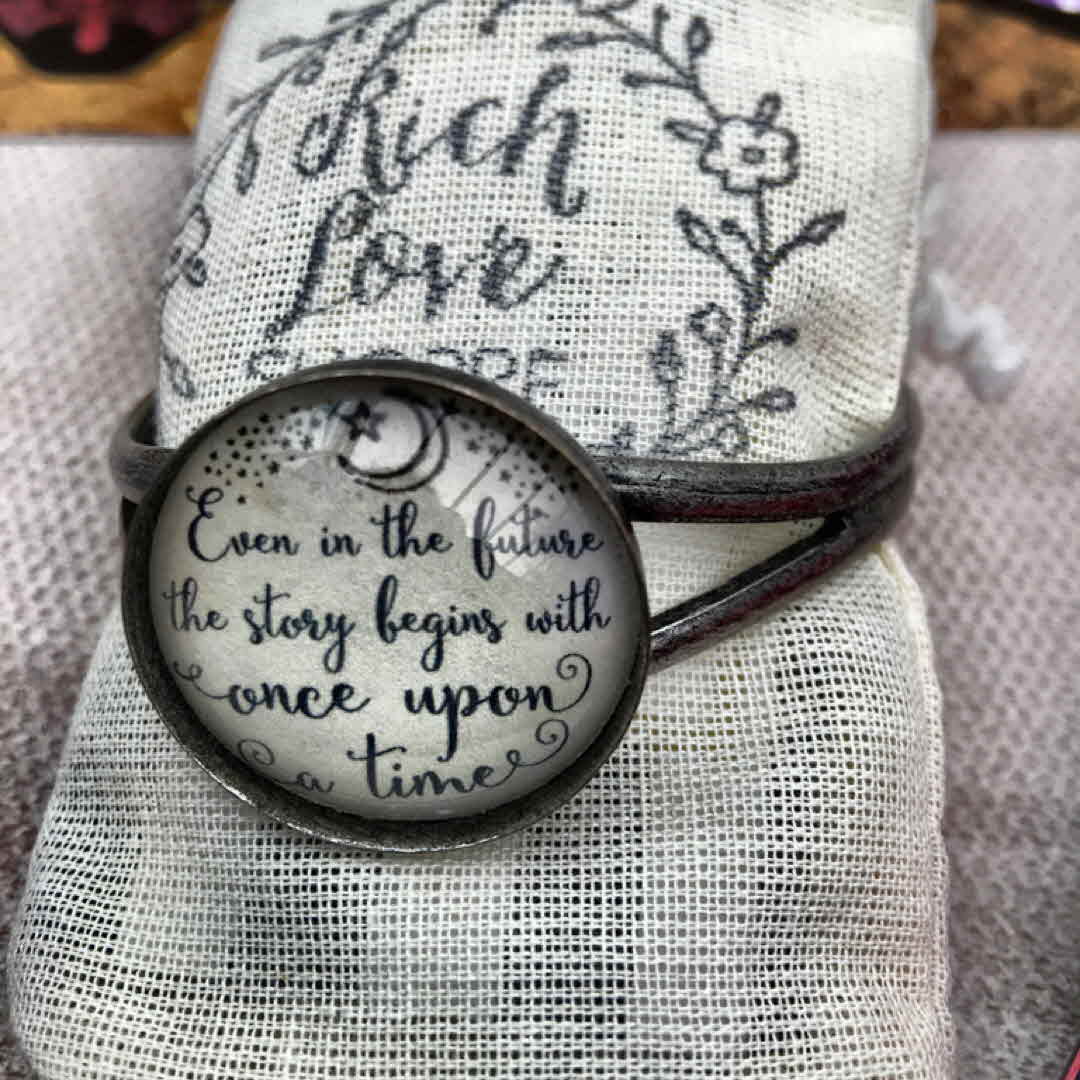 Rich
Love
Even in the future
the story begins with
once upon
a time